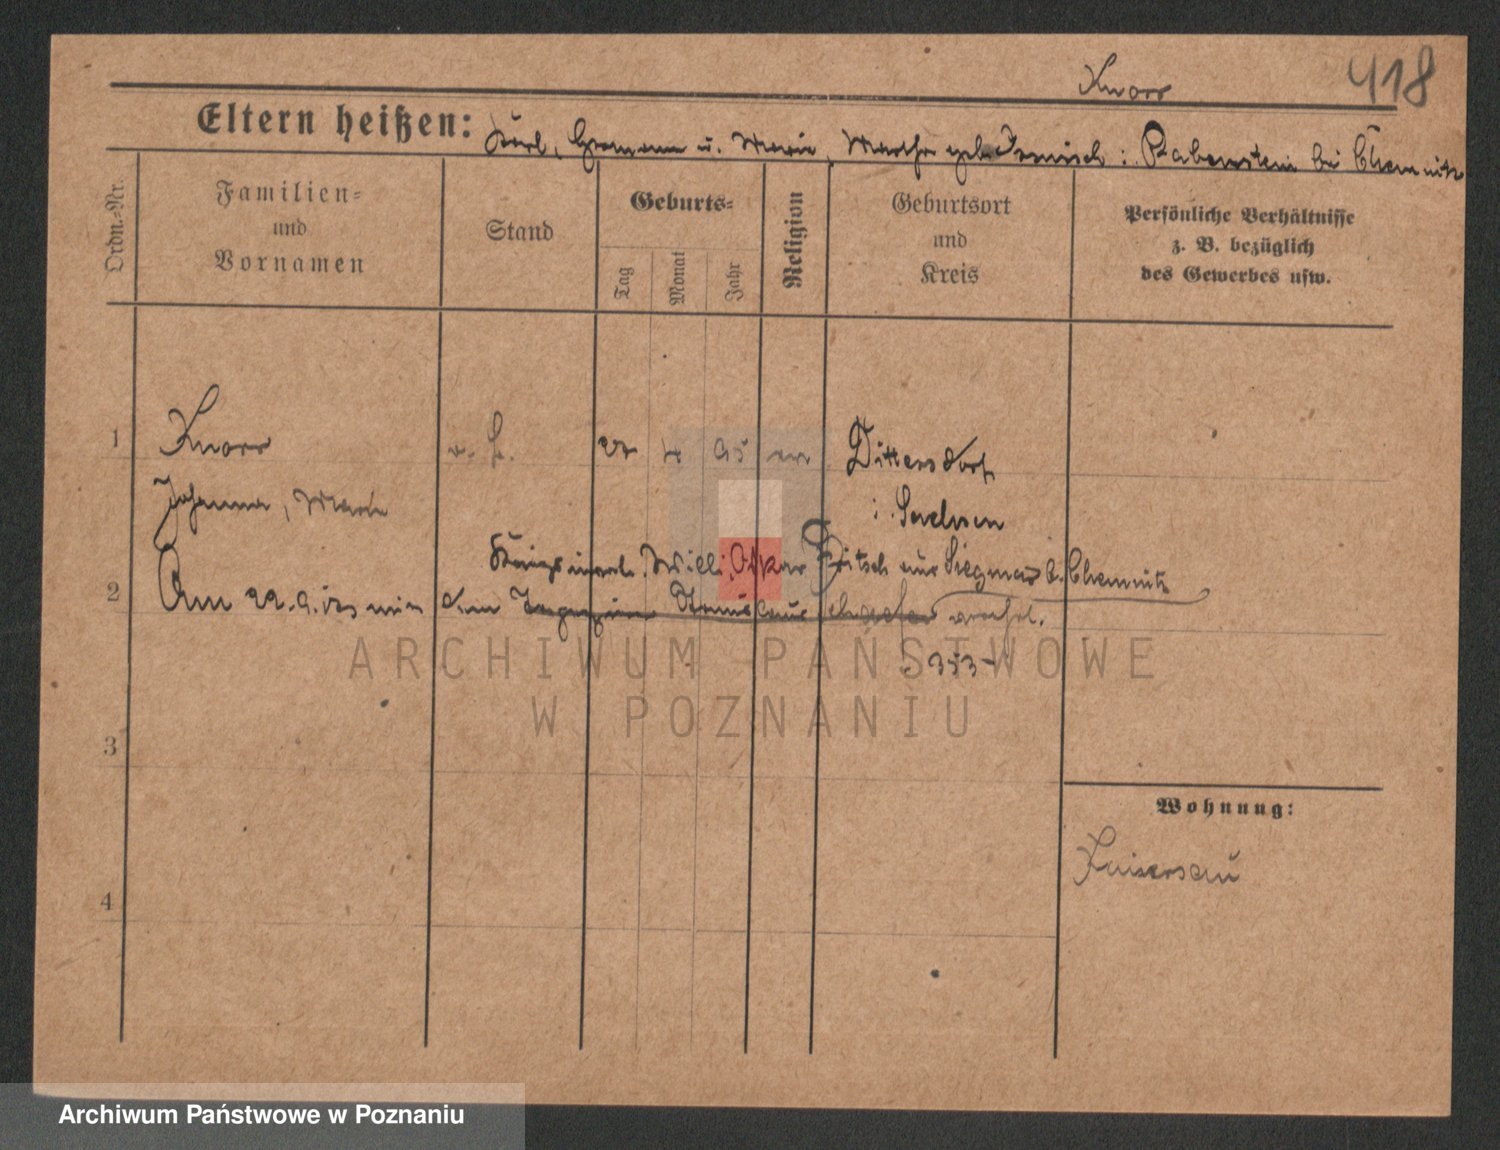 Knorr 418
Eltern heißen: Karl, Hermann u. Marie, Martha geb. : Rabenstein bei Chemnitz
Ordn.-Nr.
Familien-
und
Vornamen
Stand
Geburts-
Tag
Monat
Jahr
Religion
Geburtsort
und
Kreis
Persönliche Verhältnisse
z. B. bezüglich
des Gewerbes usw.
1 Knorr 27 4 95 ev Dittersdorf
Johanna, Marie i. Sachsen
Willi, Oskar aus Siegmar b. Chemnitz
2 Am 22.9. mit dem
353
ARCHIWUM PAŃSTWOWE
W POZNANIU
3
Wohnung:
Kaisersau
4
Archiwum Państwowe w Poznaniu